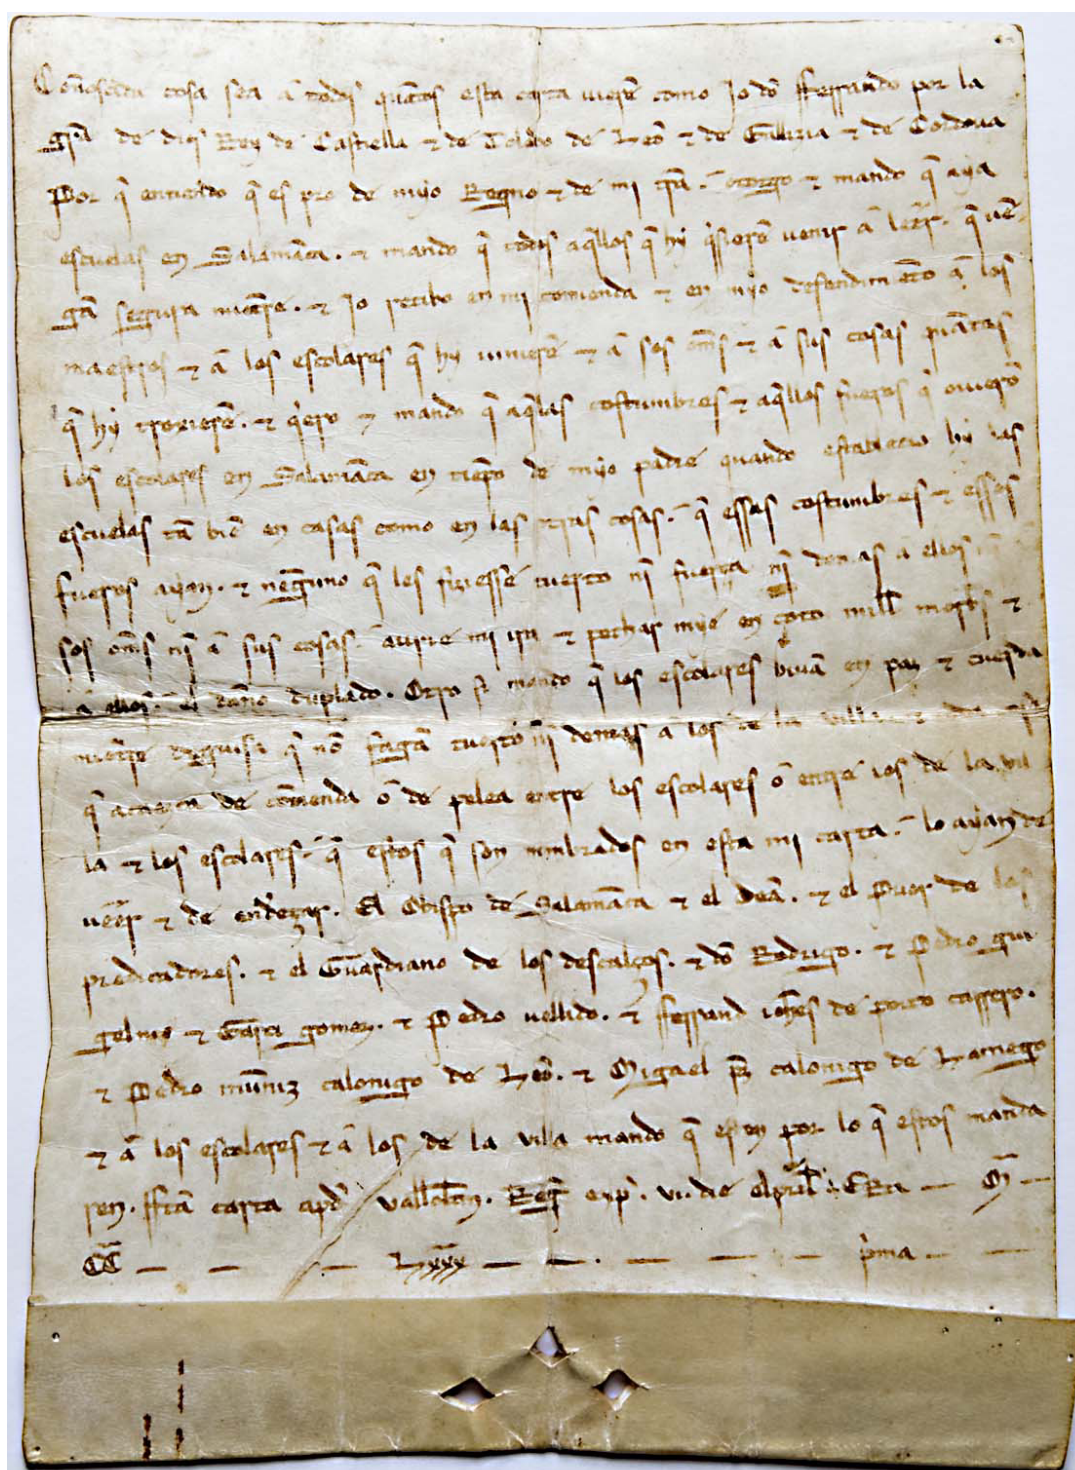 Coñosçuda cosa sea a todos quãtos esta carta uierẽ como Io dõ fferrando por la
grã de dios Rey de Castiella ⁊ de Toledo de Leõ ⁊ de Gallizia ⁊ de Cordoua
Por q̃ entiendo q̃ es pro de myo Regno ⁊ de mi tr̃ra. otorgo ⁊ mando q̃ aya
escuelas en Salamãca. ⁊ mando q̃ todos aq̃llos q̃ hy q̃sierẽ uenir a leer. q̃ uẽ
gã segura miẽtre. ⁊ Io recibo en mi comienda ⁊ en myo defendimiẽto a los
maestros ⁊ a los escolares q̃ hy uinierẽ ⁊ a sos oms̃ ⁊ a sus cosas quãtas
q̃ hy troxierẽ. ⁊ q̃ero ⁊ mando q̃ aq̃llas costumbres ⁊ aq̃llos fueros q̃ ouierõ
los escolares en Salamãca en tiẽpo de myo padre quando establecio hy las
escuelas tã biẽ en casas como en las otras cosas. q̃ essas costumbres ⁊ essos
fueros ayan. ⁊ nenguno q̃ les fiziesse tuerto nĩ fuerça nĩ demas a ellos
sos oms̃ nĩ a sus cosas. aurie mi ira ⁊ pechar mie en coto mill mor̃bs ⁊
a ellos el daño duplado. Otro si mando q̃ los escolares biuã en paz ⁊ cuerda
miẽtre de guisa q̃ nõ fagã tuerto nĩ demas a los de la uilla ⁊
q̃ acaezca de cõtienda o de pelea entre los escolares o entre los de la uil
la ⁊ los escolares. q̃ estos q̃ son nombrados en esta mi carta. lo ayan de
ueer ⁊ de endereçar. El Obispo de Salamãca ⁊ el Deã. ⁊ el Prior de los
predicadores. ⁊ el Guardiano de los descalços. ⁊ dõ Rodrigo. ⁊ Pedro gui
gelmo ⁊ Garci gomez. ⁊ Pedro uellido. ⁊ fferrand ioh̃es de porto carrero.
⁊ Pedro muñiz calonigo de Leõ. ⁊ Migael p̃z calonigo de Lamego
⁊ a los escolares ⁊ a los de la uilla mando q̃ esten por lo q̃ estos manda
ren. ffcã carta apd̃ Vallol̃. Reg̃ exp̃. vi. die April̃. ERa — M̃ —
CC̃ — — — Lxxx — — . — — — p̃ma — —